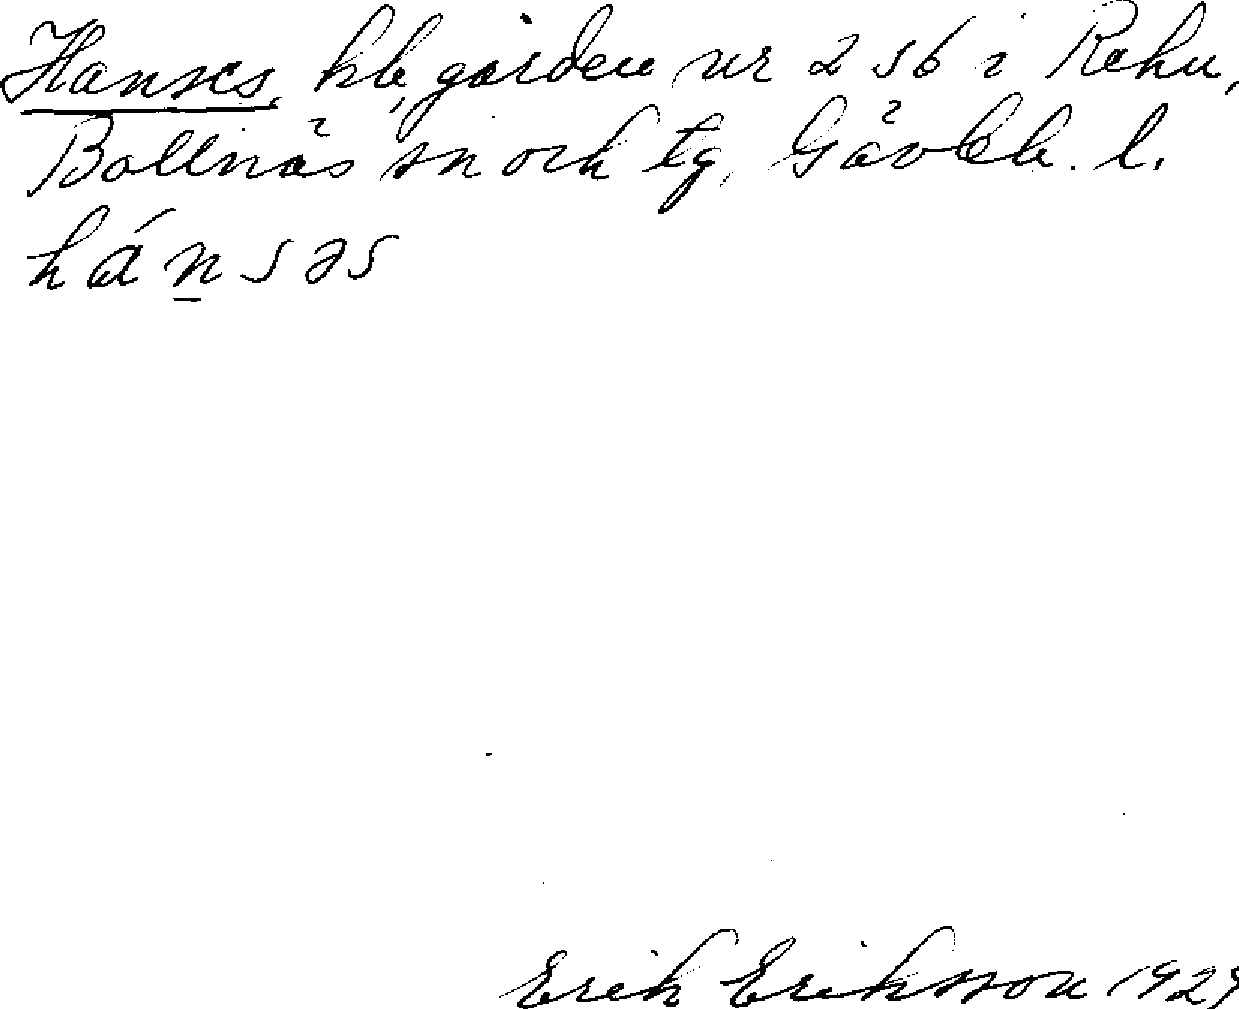 Hanses, hb, gården nr 256 i Rehn,
Bollnäs sn och tg, Gävleb. l.
hánsəs
Erik Eriksson 1929